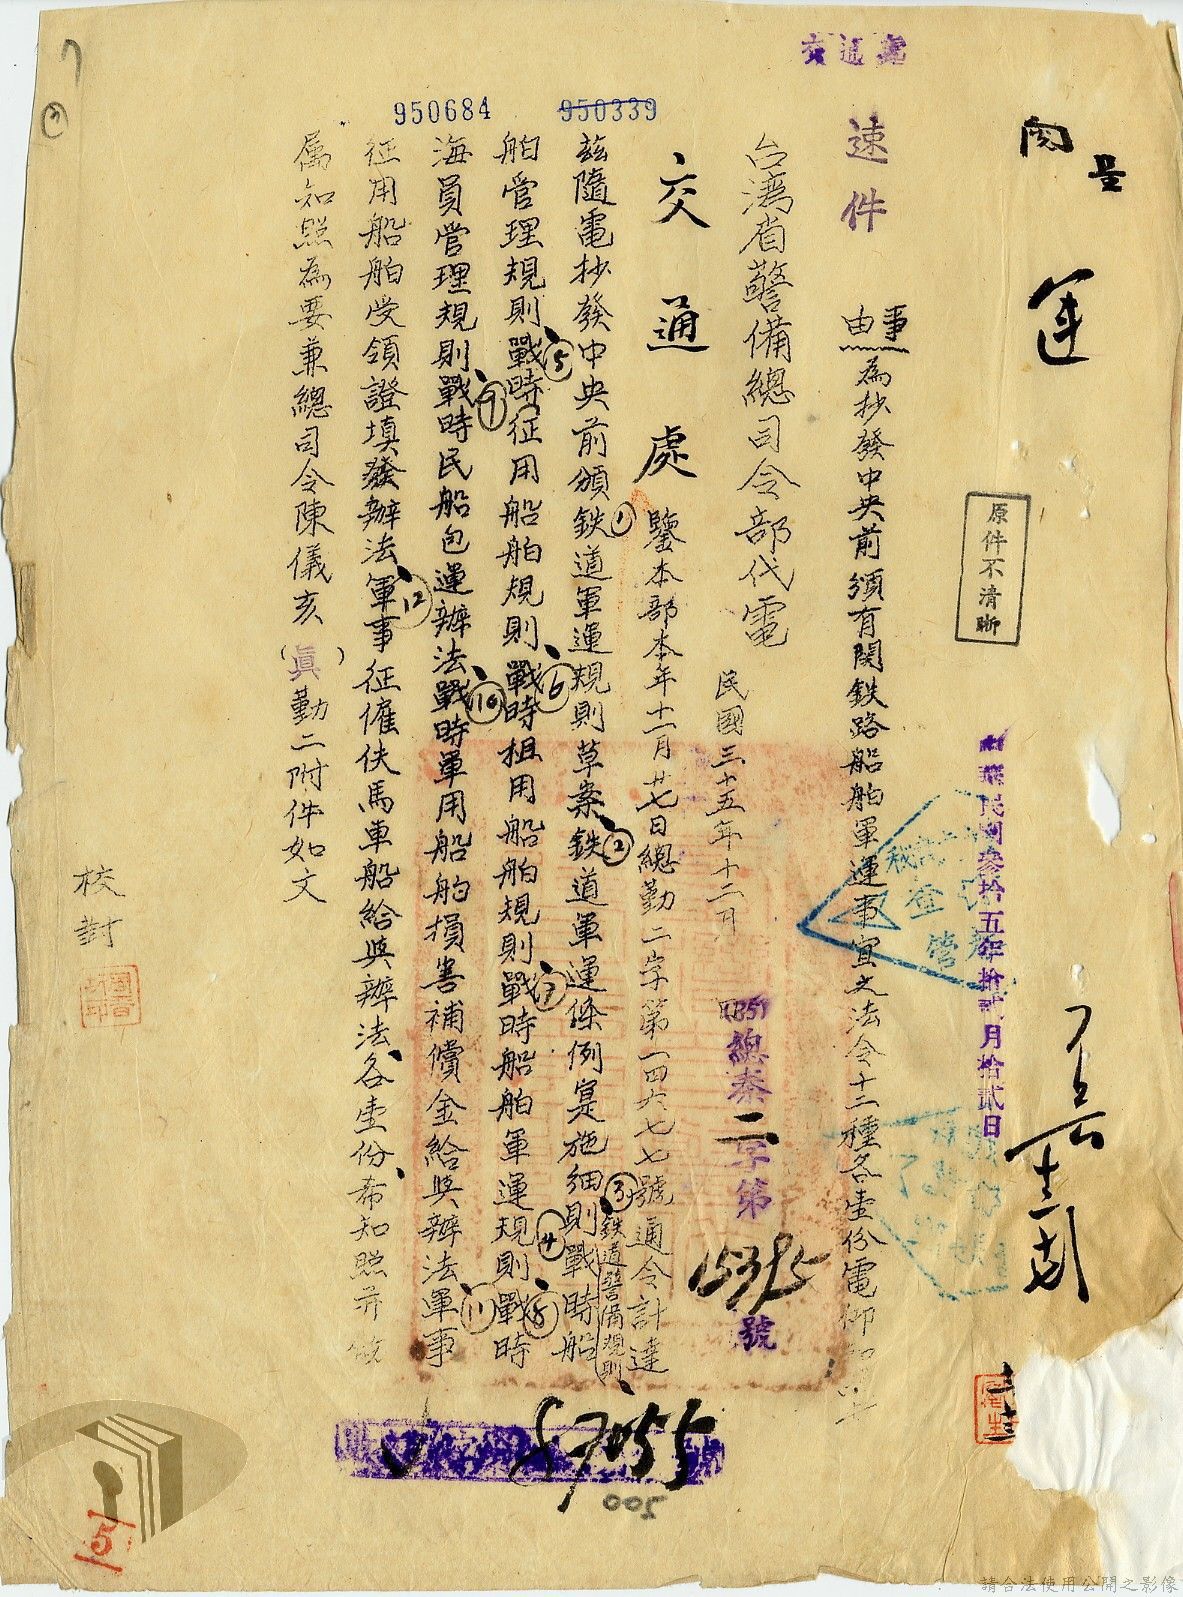 交通處
閱
呈
運
原件不清晰
中華民國參拾五年拾貳月拾貳日
速件
事由
為抄發中央前頒有関鉄路船舶軍運事宜之法令十二種各壹份電仰知照
台湾省警備總司令部代電
民國三十五年十二月
(35)總秦二字第15395號
交通處鑒本部本年十一月廿七日總勤二字第一四六七七號通令計達
茲隨電抄發中央前頒鉄道軍運規則草案鉄道軍運條例寔施細則鉄道警備規則戰時船
舶管理規則戰時征用船舶規則戰時租用船舶規則戰時船舶軍運規則戰時
海員管理規則戰時民船包運辦法戰時軍用船舶損害補償金給與辦法軍事
征用船舶受領證填發辦法軍事征僱伕馬車船給與辦法各壹份希知照并飭
屬知照為要兼總司令陳儀亥(真)勤二附件如文
①
②
③
④
⑤
⑥
⑦
⑧
⑨
⑩
⑪
⑫
950339
950684
校對
87055
500
5
請合法使用公開之影像